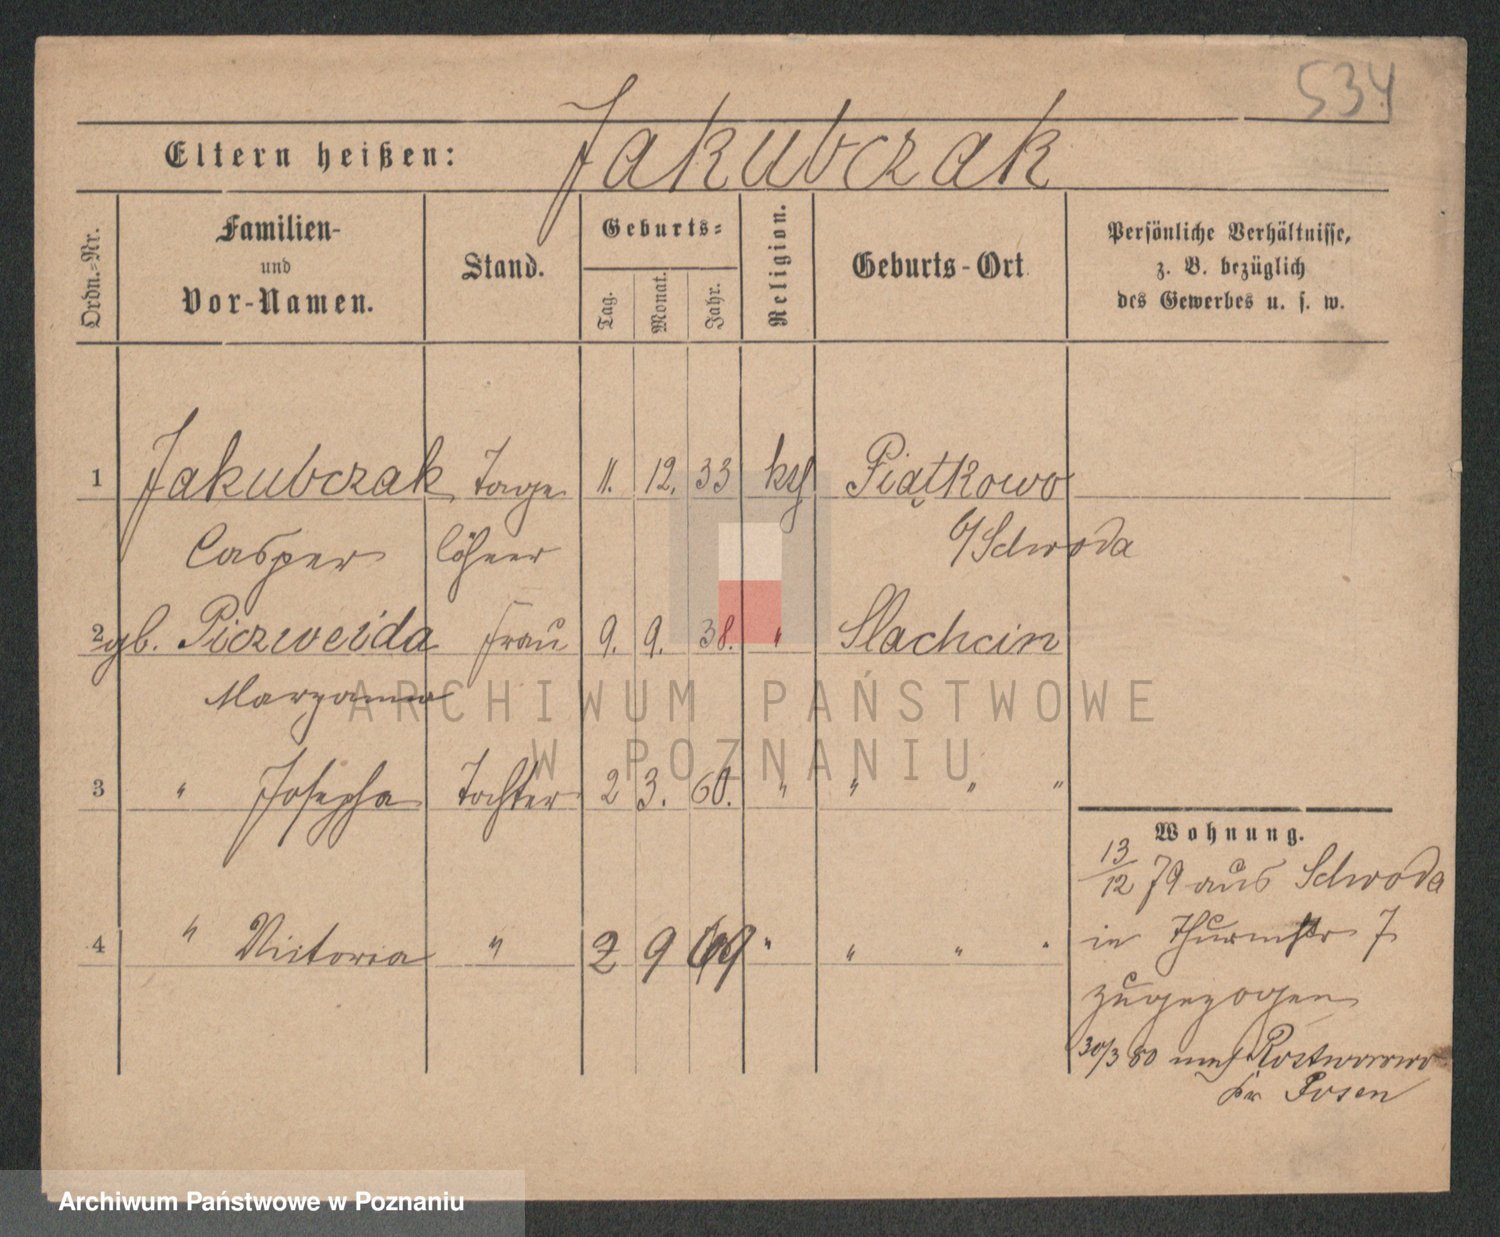 534
Eltern heißen: Jakubczak
Ordn.=Nr.
Familien-
und
Vor-Namen.
Stand.
Geburts=
Tag.
Monat.
Jahr.
Religion.
Geburts-Ort
Persönliche Verhältnisse,
z. B. bezüglich
des Gewerbes u. s. w.
1 Jakubczak Tage 11. 12. 33 kth Piątkowo
Casper löhner b/Schroda
2 gb. Piczweida Frau 9. 9. 38. " Slachcin
Maryanna
3 " Josepha Tochter 2 3. 60. " " " "
4 " Victoria " 2 9 69 " " " "
Wohnung.
13/12 79 aus Schroda
in Thurmstr 7
zugezogen
30/3 80 nach
br Posen
ARCHIWUM PAŃSTWOWE
W POZNANIU
Archiwum Państwowe w Poznaniu